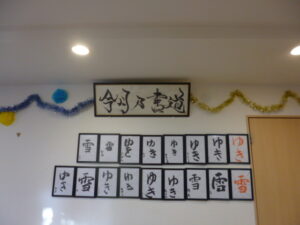 今月乃書道
雪 雪 ゆき ゆき ゆき ゆき ゆき ゆき
ゆき 雪 ゆき ゆき ゆき ゆき 雪 雪 雪